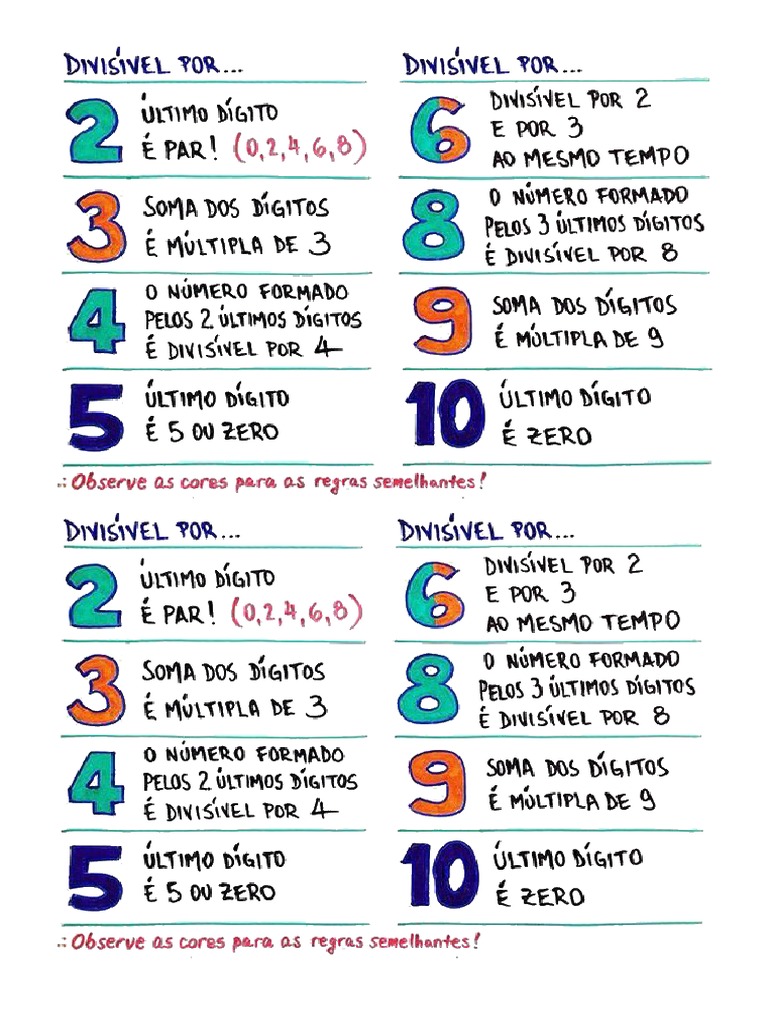 DIVISÍVEL POR...
2 ÚLTIMO DÍGITO
É PAR! (0,2,4,6,8)
3 SOMA DOS DÍGITOS
É MÚLTIPLA DE 3
4 O NÚMERO FORMADO
PELOS 2 ÚLTIMOS DÍGITOS
É DIVISÍVEL POR 4
5 ÚLTIMO DÍGITO
É 5 OU ZERO
DIVISÍVEL POR...
6 DIVISÍVEL POR 2
E POR 3
AO MESMO TEMPO
8 O NÚMERO FORMADO
PELOS 3 ÚLTIMOS DÍGITOS
É DIVISÍVEL POR 8
9 SOMA DOS DÍGITOS
É MÚLTIPLA DE 9
10 ÚLTIMO DÍGITO
É ZERO
∴ Observe as cores para as regras semelhantes!
DIVISÍVEL POR...
2 ÚLTIMO DÍGITO
É PAR! (0,2,4,6,8)
3 SOMA DOS DÍGITOS
É MÚLTIPLA DE 3
4 O NÚMERO FORMADO
PELOS 2 ÚLTIMOS DÍGITOS
É DIVISÍVEL POR 4
5 ÚLTIMO DÍGITO
É 5 OU ZERO
DIVISÍVEL POR...
6 DIVISÍVEL POR 2
E POR 3
AO MESMO TEMPO
8 O NÚMERO FORMADO
PELOS 3 ÚLTIMOS DÍGITOS
É DIVISÍVEL POR 8
9 SOMA DOS DÍGITOS
É MÚLTIPLA DE 9
10 ÚLTIMO DÍGITO
É ZERO
∴ Observe as cores para as regras semelhantes!